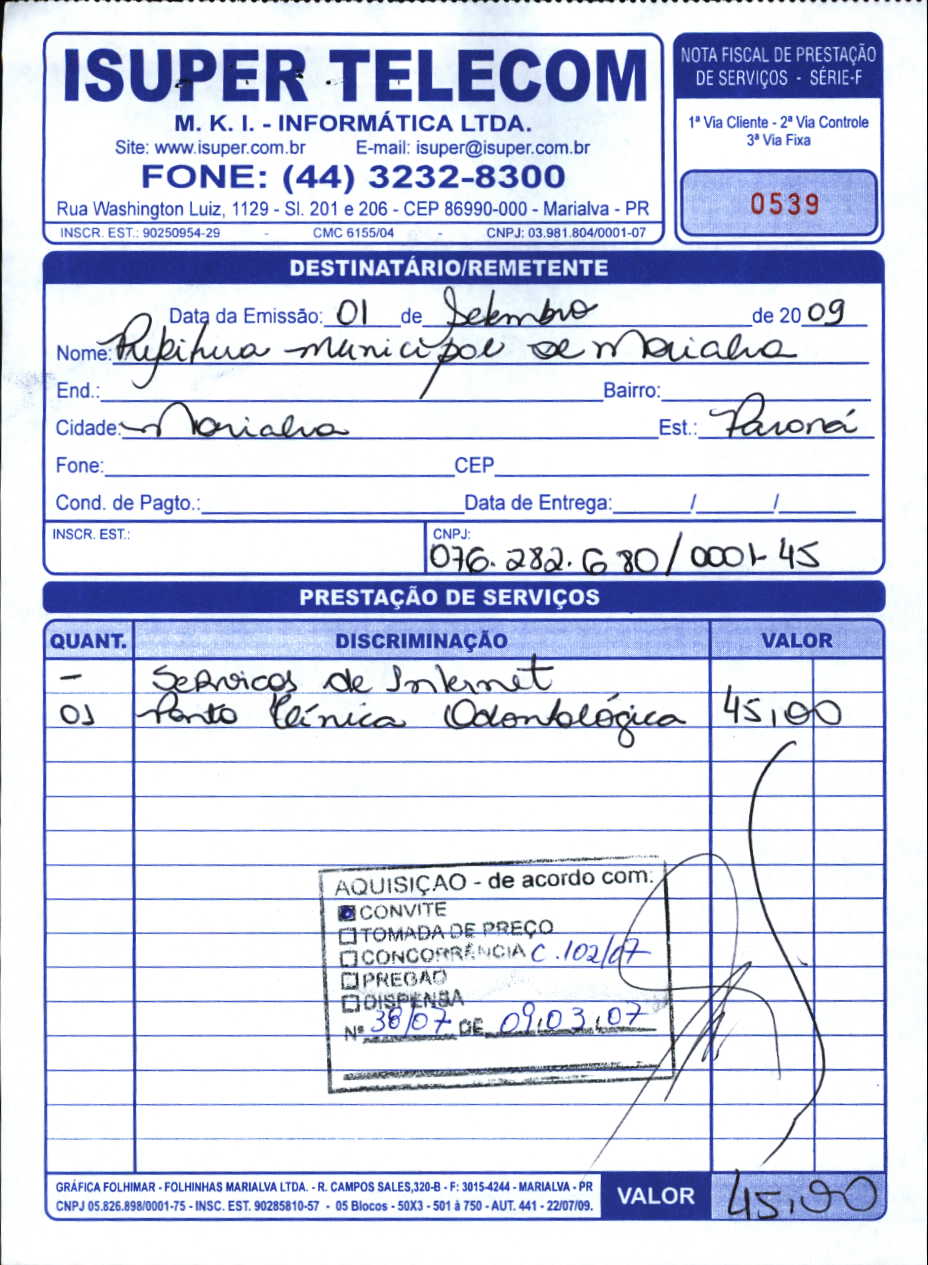 ISUPER TELECOM
M. K. I. - INFORMÁTICA LTDA.
Site: www.isuper.com.br E-mail: isuper@isuper.com.br
FONE: (44) 3232-8300
Rua Washington Luiz, 1129 - Sl. 201 e 206 - CEP 86990-000 - Marialva - PR
INSCR. EST.: 90250954-29 - CMC 6155/04 - CNPJ: 03.981.804/0001-07
NOTA FISCAL DE PRESTAÇÃO
DE SERVIÇOS - SÉRIE-F
1ª Via Cliente - 2ª Via Controle
3ª Via Fixa
0539
DESTINATÁRIO/REMETENTE
Data da Emissão: 01 de Setembro de 2009
Nome: Prefeitura municipal de Marialva
End.: Bairro:
Cidade: Marialva Est.: Paraná
Fone: CEP
Cond. de Pagto.: Data de Entrega: / /
INSCR. EST.: CNPJ:
076.282.680/0001-45
PRESTAÇÃO DE SERVIÇOS
QUANT. DISCRIMINAÇÃO VALOR
- Serviços de Internet
01 Ponto Clínica Odontológica 45,00
AQUISIÇÃO - de acordo com:
CONVITE
TOMADA DE PREÇO
CONCORRÊNCIA C.102/07
PREGÃO
DISPENSA
Nº 38/07 DE 09,03,07
GRÁFICA FOLHIMAR - FOLHINHAS MARIALVA LTDA. - R. CAMPOS SALES,320-B - F: 3015-4244 - MARIALVA - PR
CNPJ 05.826.898/0001-75 - INSC. EST. 90285810-57 - 05 Blocos - 50X3 - 501 à 750 - AUT. 441 - 22/07/09.
VALOR 45,00